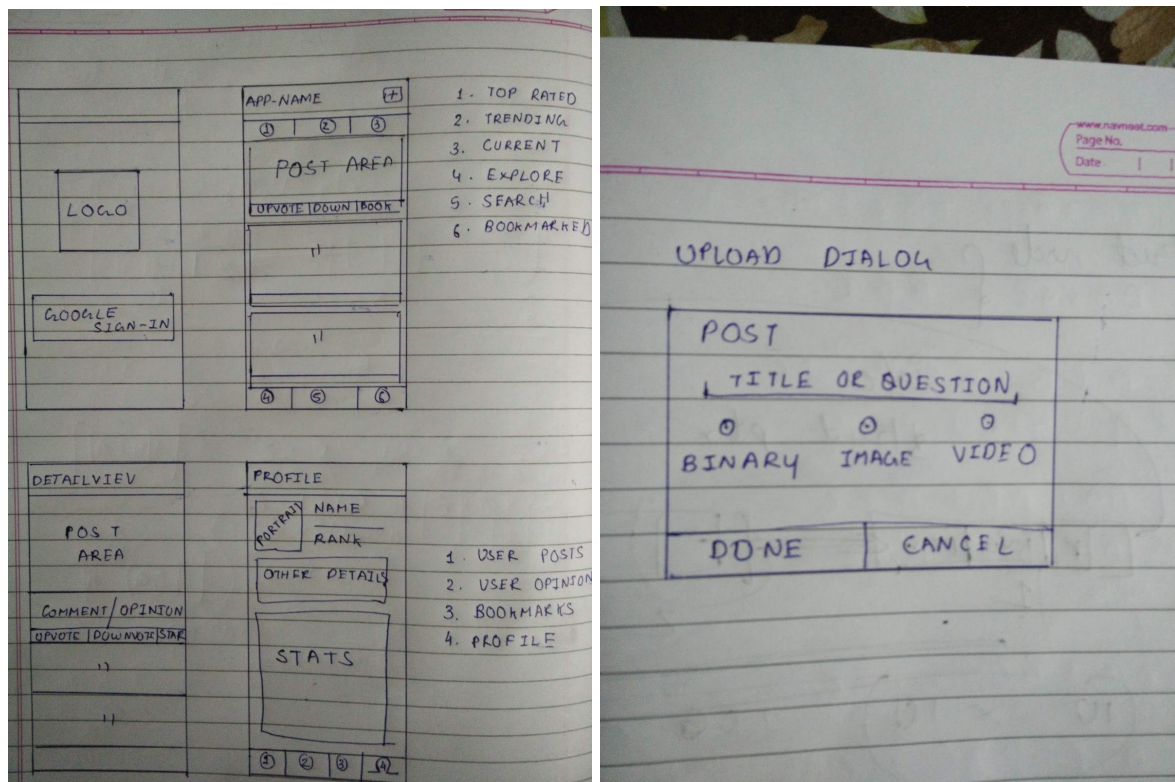 LOGO
GOOGLE
SIGN-IN
APP-NAME +
① ② ③
POST AREA
UPVOTE DOWN BOOK
"
"
④ ⑤ ⑥
1. TOP RATED
2. TRENDING
3. CURRENT
4. EXPLORE
5. SEARCH
6. BOOKMARKED
DETAILVIEV
POST
AREA
COMMENT/OPINION
UPVOTE DOWNVOTE STAR
"
"
PROFILE
PORTRAIT
NAME
RANK
OTHER DETAILS
STATS
① ② ③ ④
1. USER POSTS
2. USER OPINION
3. BOOKMARKS
4. PROFILE
www.navneet.com
Page No.
Date
UPLOAD DIALOG
POST
TITLE OR QUESTION
BINARY IMAGE VIDEO
DONE CANCEL